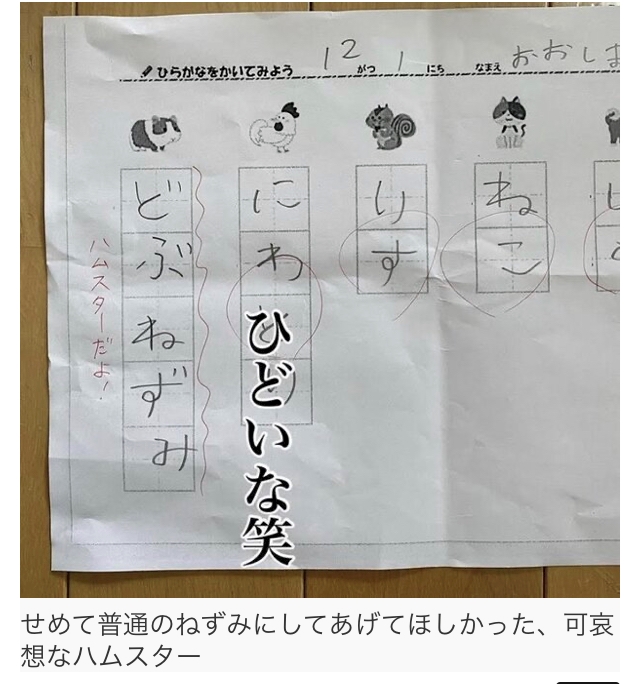 ひらがなをかいてみよう 12 がつ 1 にち なまえ おおしま
どぶねずみ
ハムスターだよ!
にわとり
りす
ねこ
ひどいな笑
せめて普通のねずみにしてあげてほしかった、可哀
想なハムスター